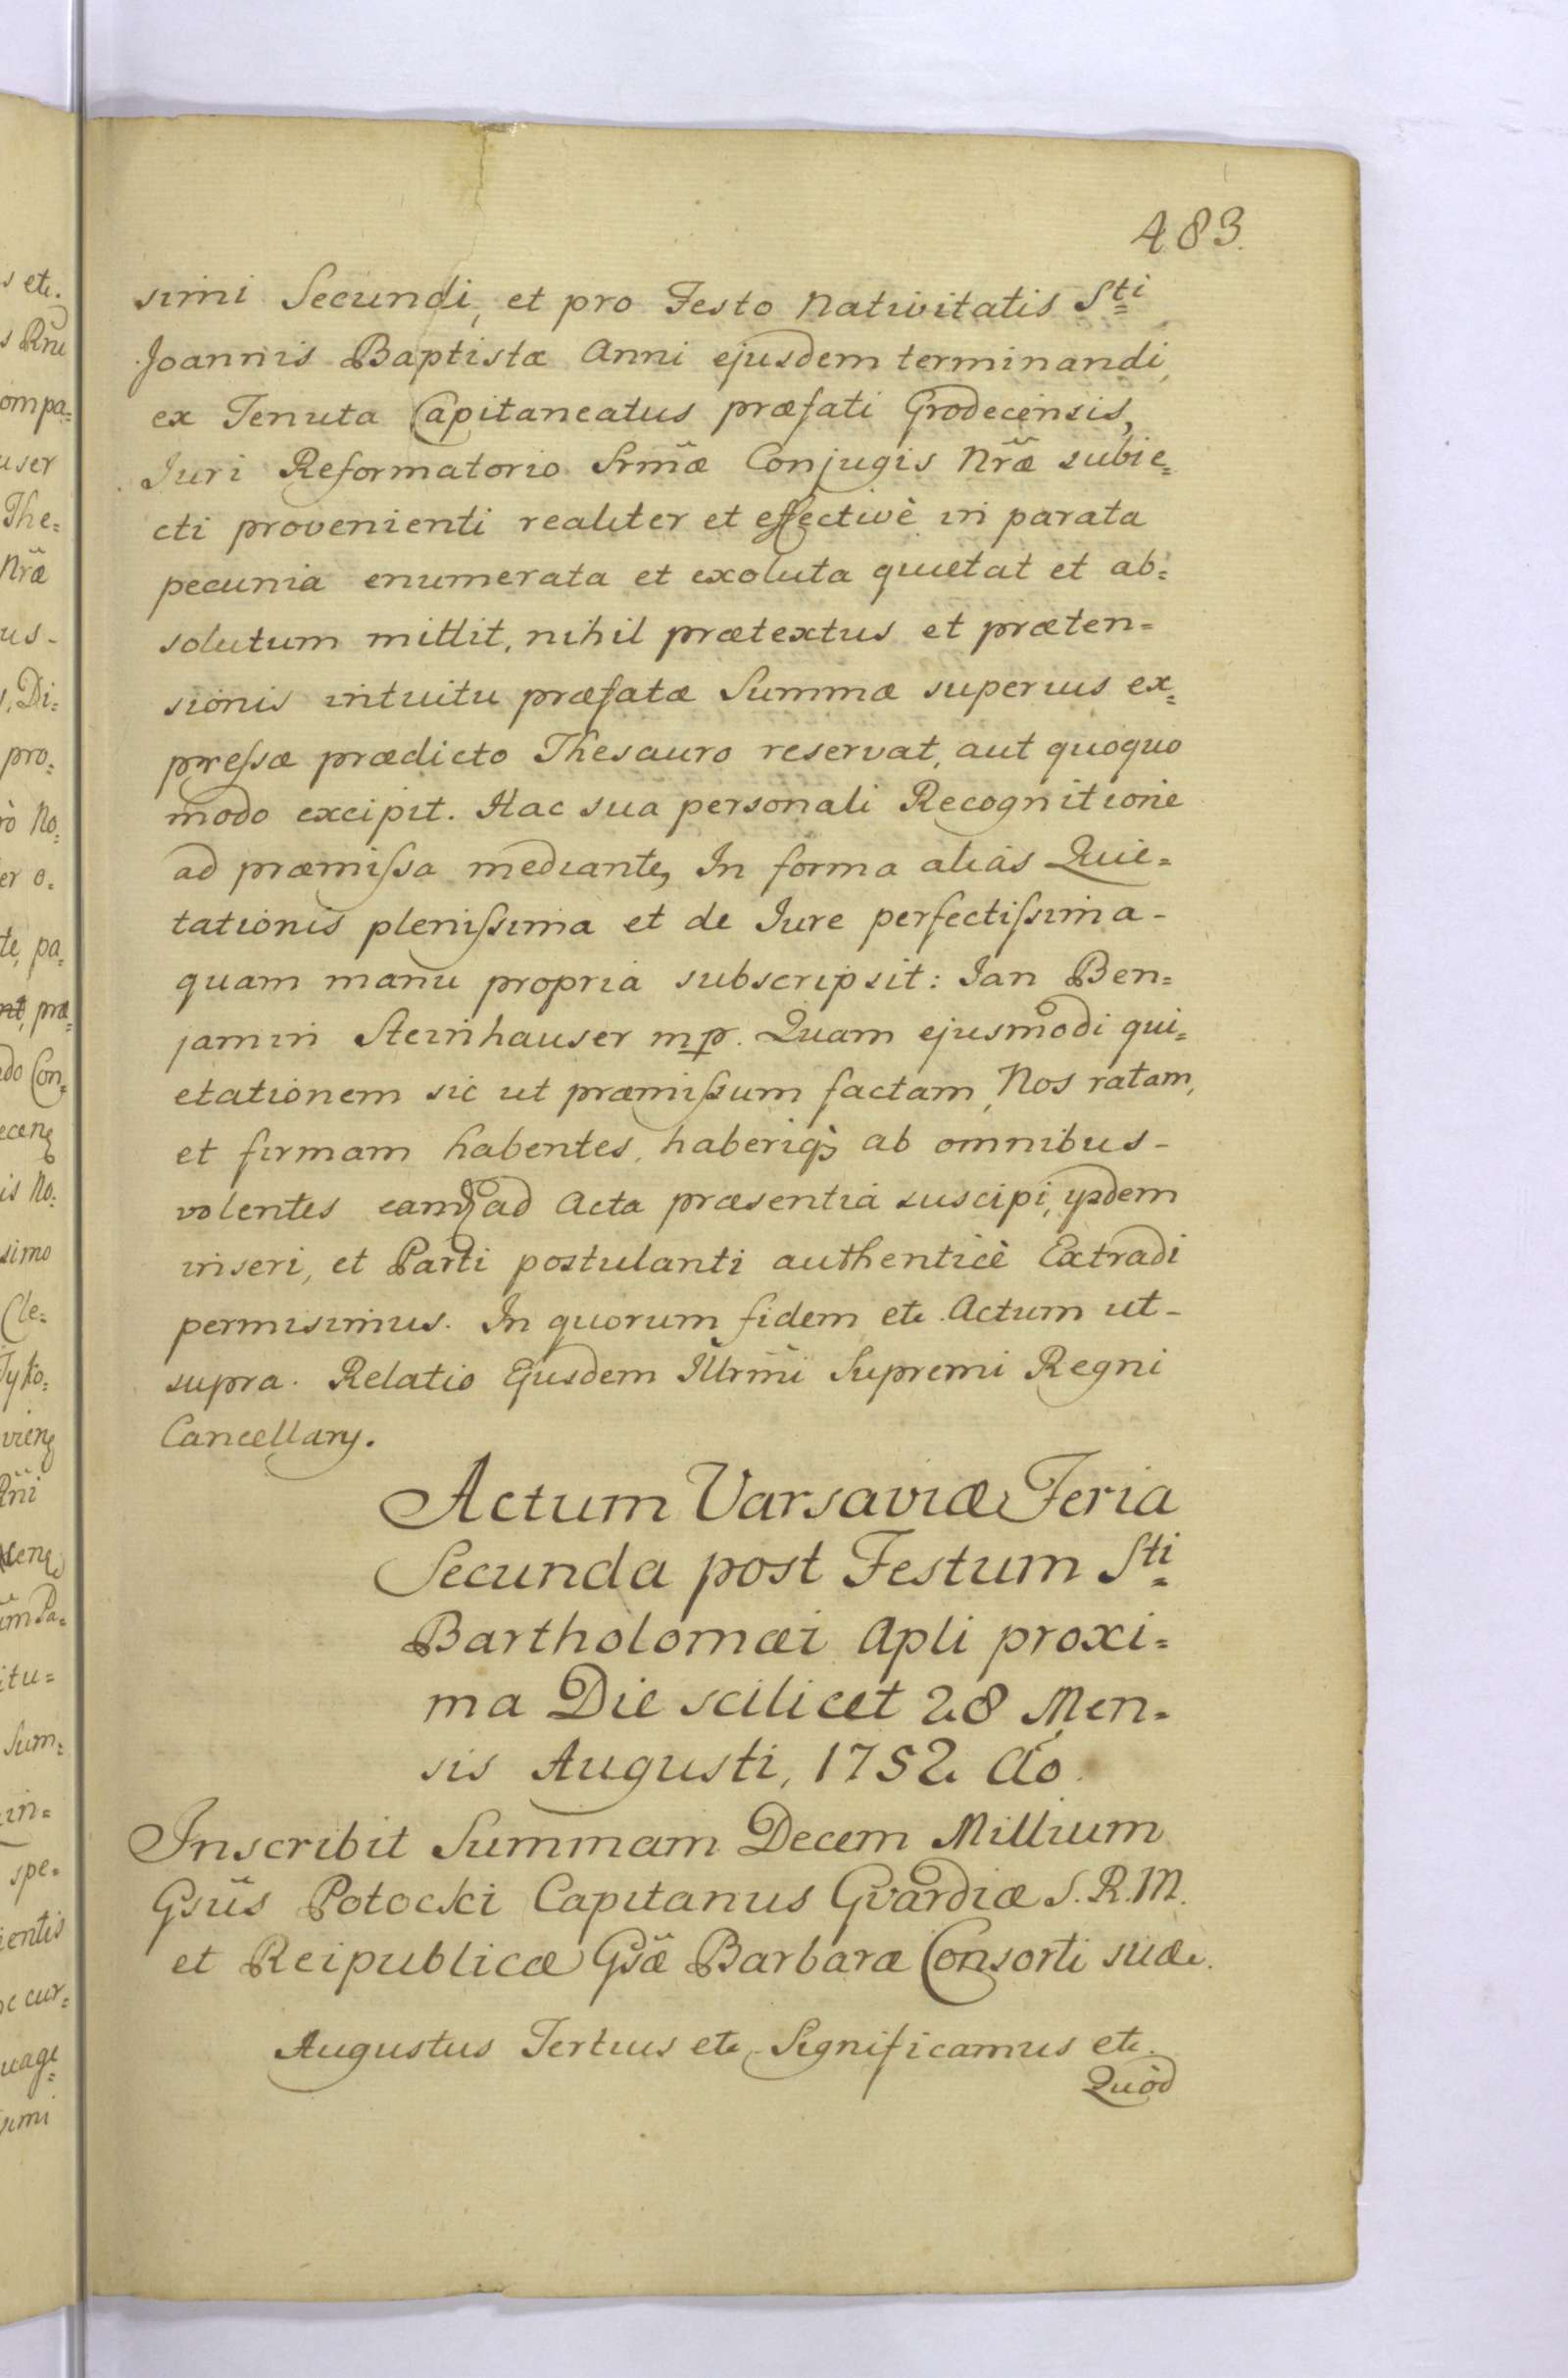 483.
simi Secundi, et pro Festo Nativitatis Sti
Joannis Baptistæ Anni ejusdem terminandi,
ex Tenuta Capitaneatus præfati Grodecensis,
Juri Reformatorio Srm̃æ Conjugis Nr̃æ subie=
cti provenienti realiter et effectivè in parata
pecunia enumerata et exoluta quietat et ab=
solutum mittit, nihil prætextus et præten=
sionis intuitu præfatæ Summæ superius ex=
pressæ prædicto Thesauro reservat, aut quoquo
modo excipit. Hac sua personali Recognitione
ad præmissa mediante, In forma aliàs Quie=
tationis plenissima et de Jure perfectissima-
quam manu propria subscripsit: Jan Ben=
jamin Steinhauser mp. Quam ejusmodi qui=
etationem sic ut præmissum factam, Nos ratam,
et firmam habentes, haberiq; ab omnibus-
volentes eamq; ad Acta præsentia suscipi, ysdem
inseri, et Parti postulanti authenticè Extradi
permisimus. In quorum fidem etc. Actum ut-
supra. Relatio Ejusdem Illrm̃i Supremi Regni
Cancellary.
Actum Varsaviæ Feria
Secunda post Festum Sti
Bartholomæi Apli proxi=
ma Die scilicet 28 Men=
sis Augusti, 1752 Ao.
Inscribit Summam Decem Millium
Gsũs Potocki Capitanus Gvardiæ S.R.M.
et Reipublicæ Gsæ̃ Barbaræ Consorti suæ.
Augustus Tertius etc. Significamus etc.
Quòd
s etc.
ompa=
user
The=
Nr̃æ
us-
s, Di=
pro=
rò No=
er o=
te, pa=
præ=
do Con=
is No=
simo
Cle=
Tyko=
itu=
Sum=
in=
spe=
ientis
c cur=